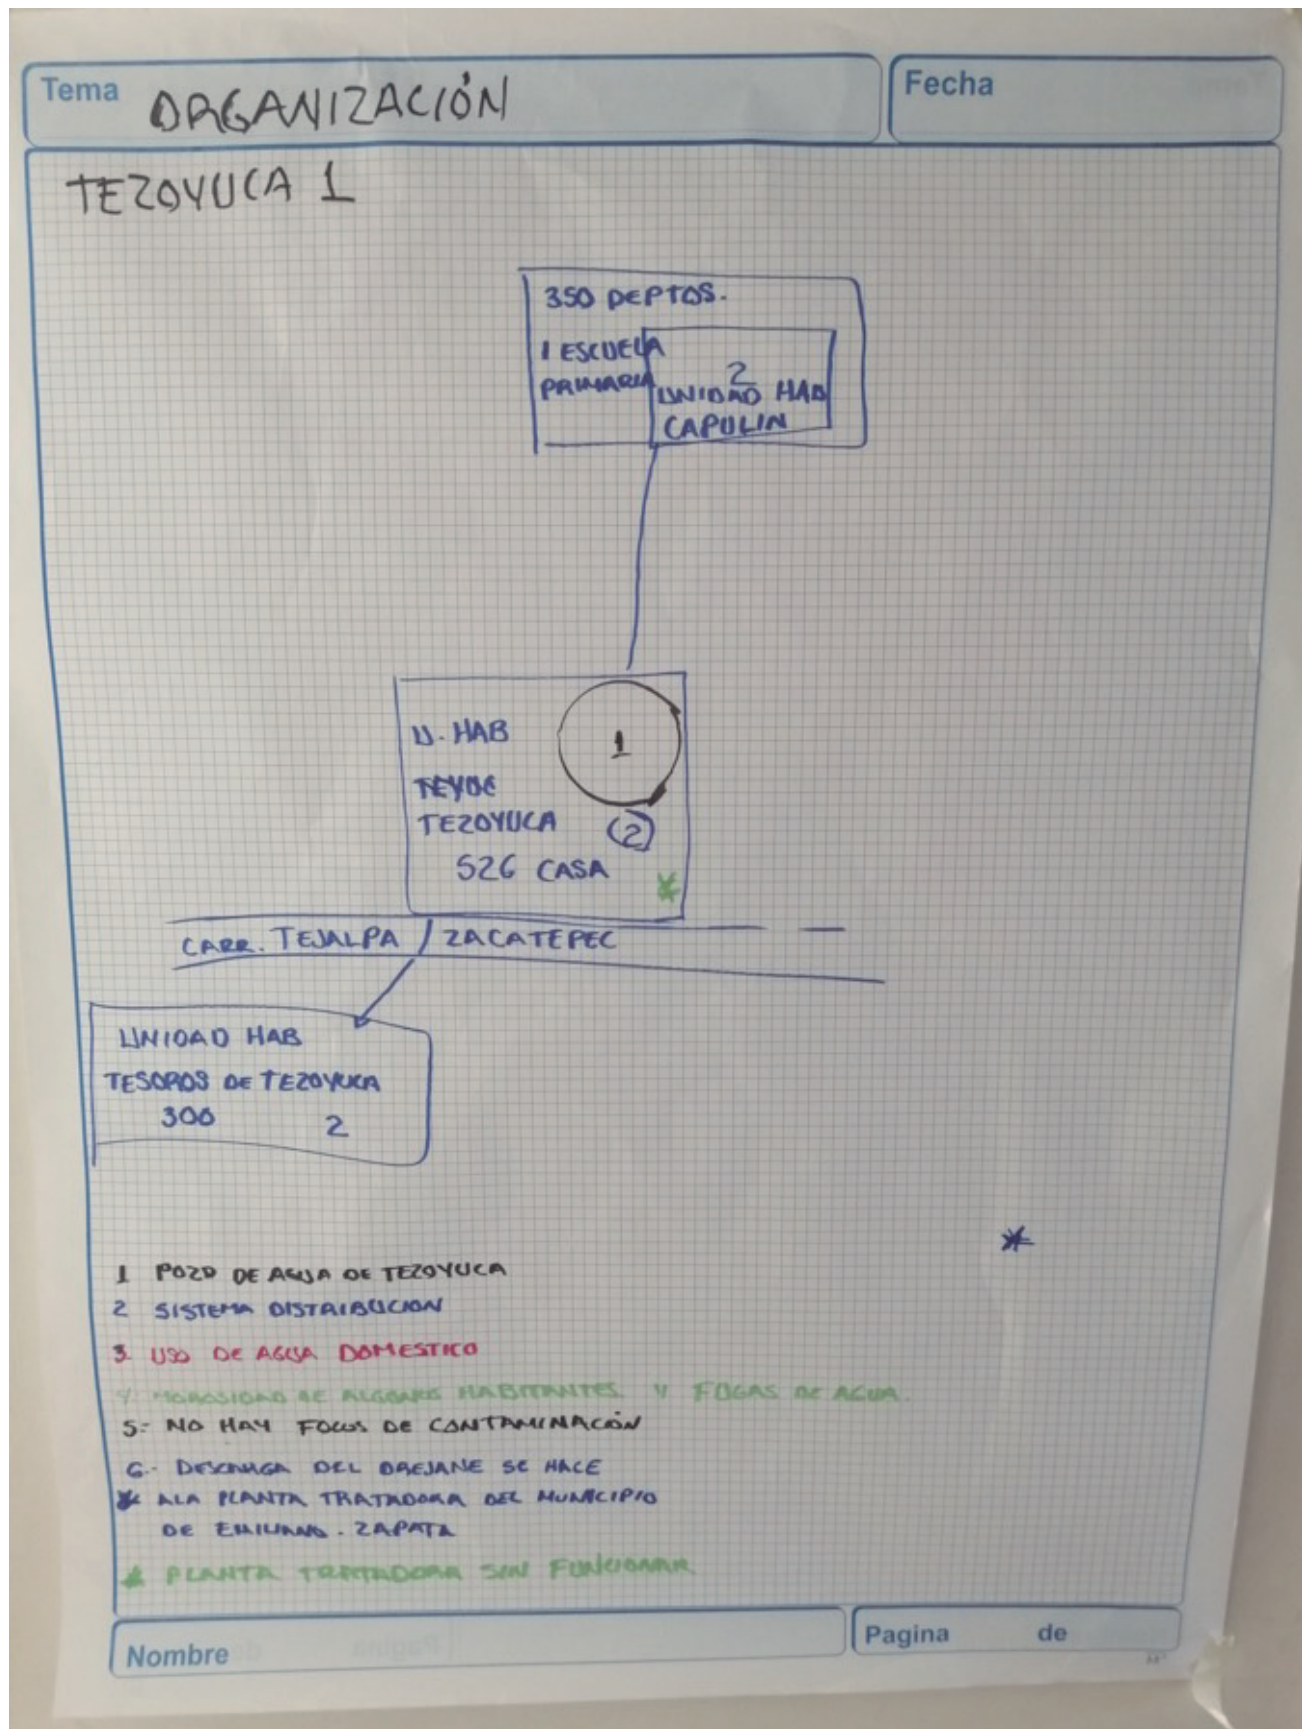 Tema ORGANIZACIÓN
Fecha
TEZOYUCA 1
350 DEPTOS.
1 ESCUELA
PRIMARIA
2
UNIDAD HAB
CAPULIN
U. HAB
1
TEZOYUCA (2)
526 CASA
CARR. TEJALPA / ZACATEPEC
UNIDAD HAB
TESOROS DE TEZOYUCA
300 2
1 POZO DE AGUA DE TEZOYUCA
2 SISTEMA DISTRIBUCION
3. USO DE AGUA DOMESTICO
4. MOROSIDAD DE ALGUNOS HABITANTES. Y FUGAS DE AGUA.
5.- NO HAY FOCOS DE CONTAMINACIÓN
6.- DESCARGA DEL DREJANE SE HACE
* ALA PLANTA TRATADORA DEL MUNICIPIO
DE EMILIANO. ZAPATA
* PLANTA TRATADORA SIN FUNCIONAR
Nombre
Pagina de